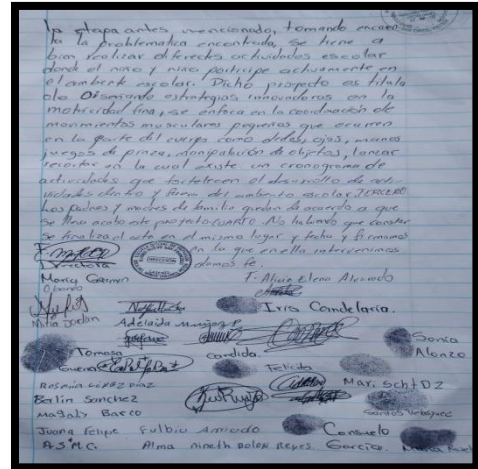 la etapa antes mencionado, tomando encuen
ta la problematica encontrada, se tiene a
bien realizar diferentes actividades escolar
donde el niño y niña participe activamente en
el ambiente escolar. Dicho proyecto es titula
do Diseñando estrategias innovadoras en la
motricidad fina, se enfoca en la coordinación de
movimientos musculares pequeños que ocurren
en la parte del cuerpo como dedos, ojos, manos
juegos de pinza, manipulación de objetos, lanzar
recortar en la cual existe un cronograma de
actividades que fortalecen el desarrollo de acti
vidades dentro y fuera del ambiente escolar TERCERO
Los padres y madres de familia quedan de acuerdo a que
se lleve acabo este proyecto CUARTO No habiendo que constar
se finaliza el acta en el mismo lugar y fecha y firmamos
en la que en ella intervenimos
damos fe.
Directora
DIRECCION
Maria Carmen
F. Alicia Elena Alvarado
Iris Candelaria.
Adelaida Muñoz P.
Sonia
Alonzo
Tomasa
Candida.
Felicita
Berlin Sanchez
Magaly Barco
Santos Velasquez
Juana Felipe
Eulbia
Consuelo
A.S.M.C.
Alma Nineth Dolon Reyes.
Garcia.
Maria